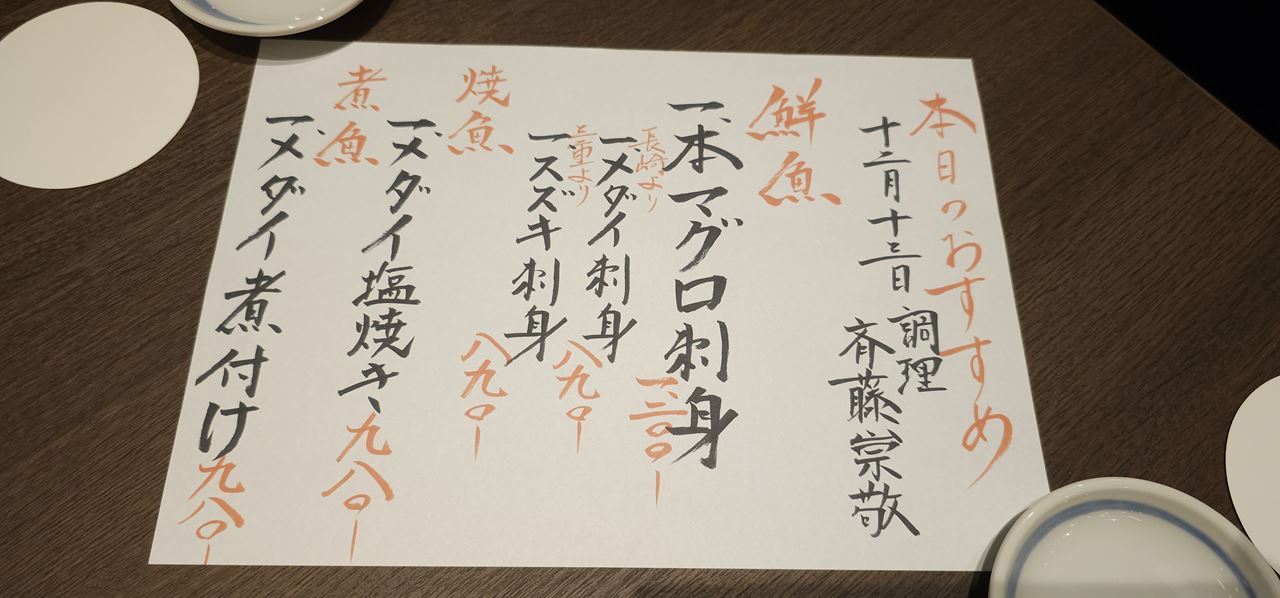 本日のおすすめ
十二月十三日
調理
斉藤宗敬
鮮魚
一、本マグロ刺身 一三〇〇ー
長崎より
一、メダイ刺身 八九〇ー
三重より
一、スズキ刺身 八九〇ー
焼魚
一、メダイ塩焼き、九八〇ー
煮魚
一、メダイ煮付け 九八〇ー